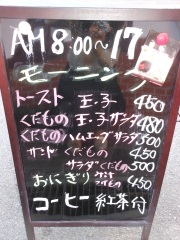 AM8:00~17
モーニング
トースト 玉・子 450
くだもの 玉・子サンダ 480
くだもの ハムエッグサラダ 500
サンド くだもの 450
サラダくだもの 500
おにぎり 450
コーヒー 紅茶付